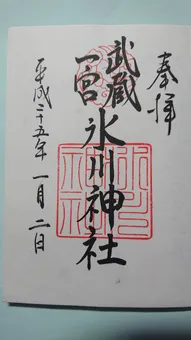 奉拝
武蔵
一宮
氷川神社
平成二十五年一月二日